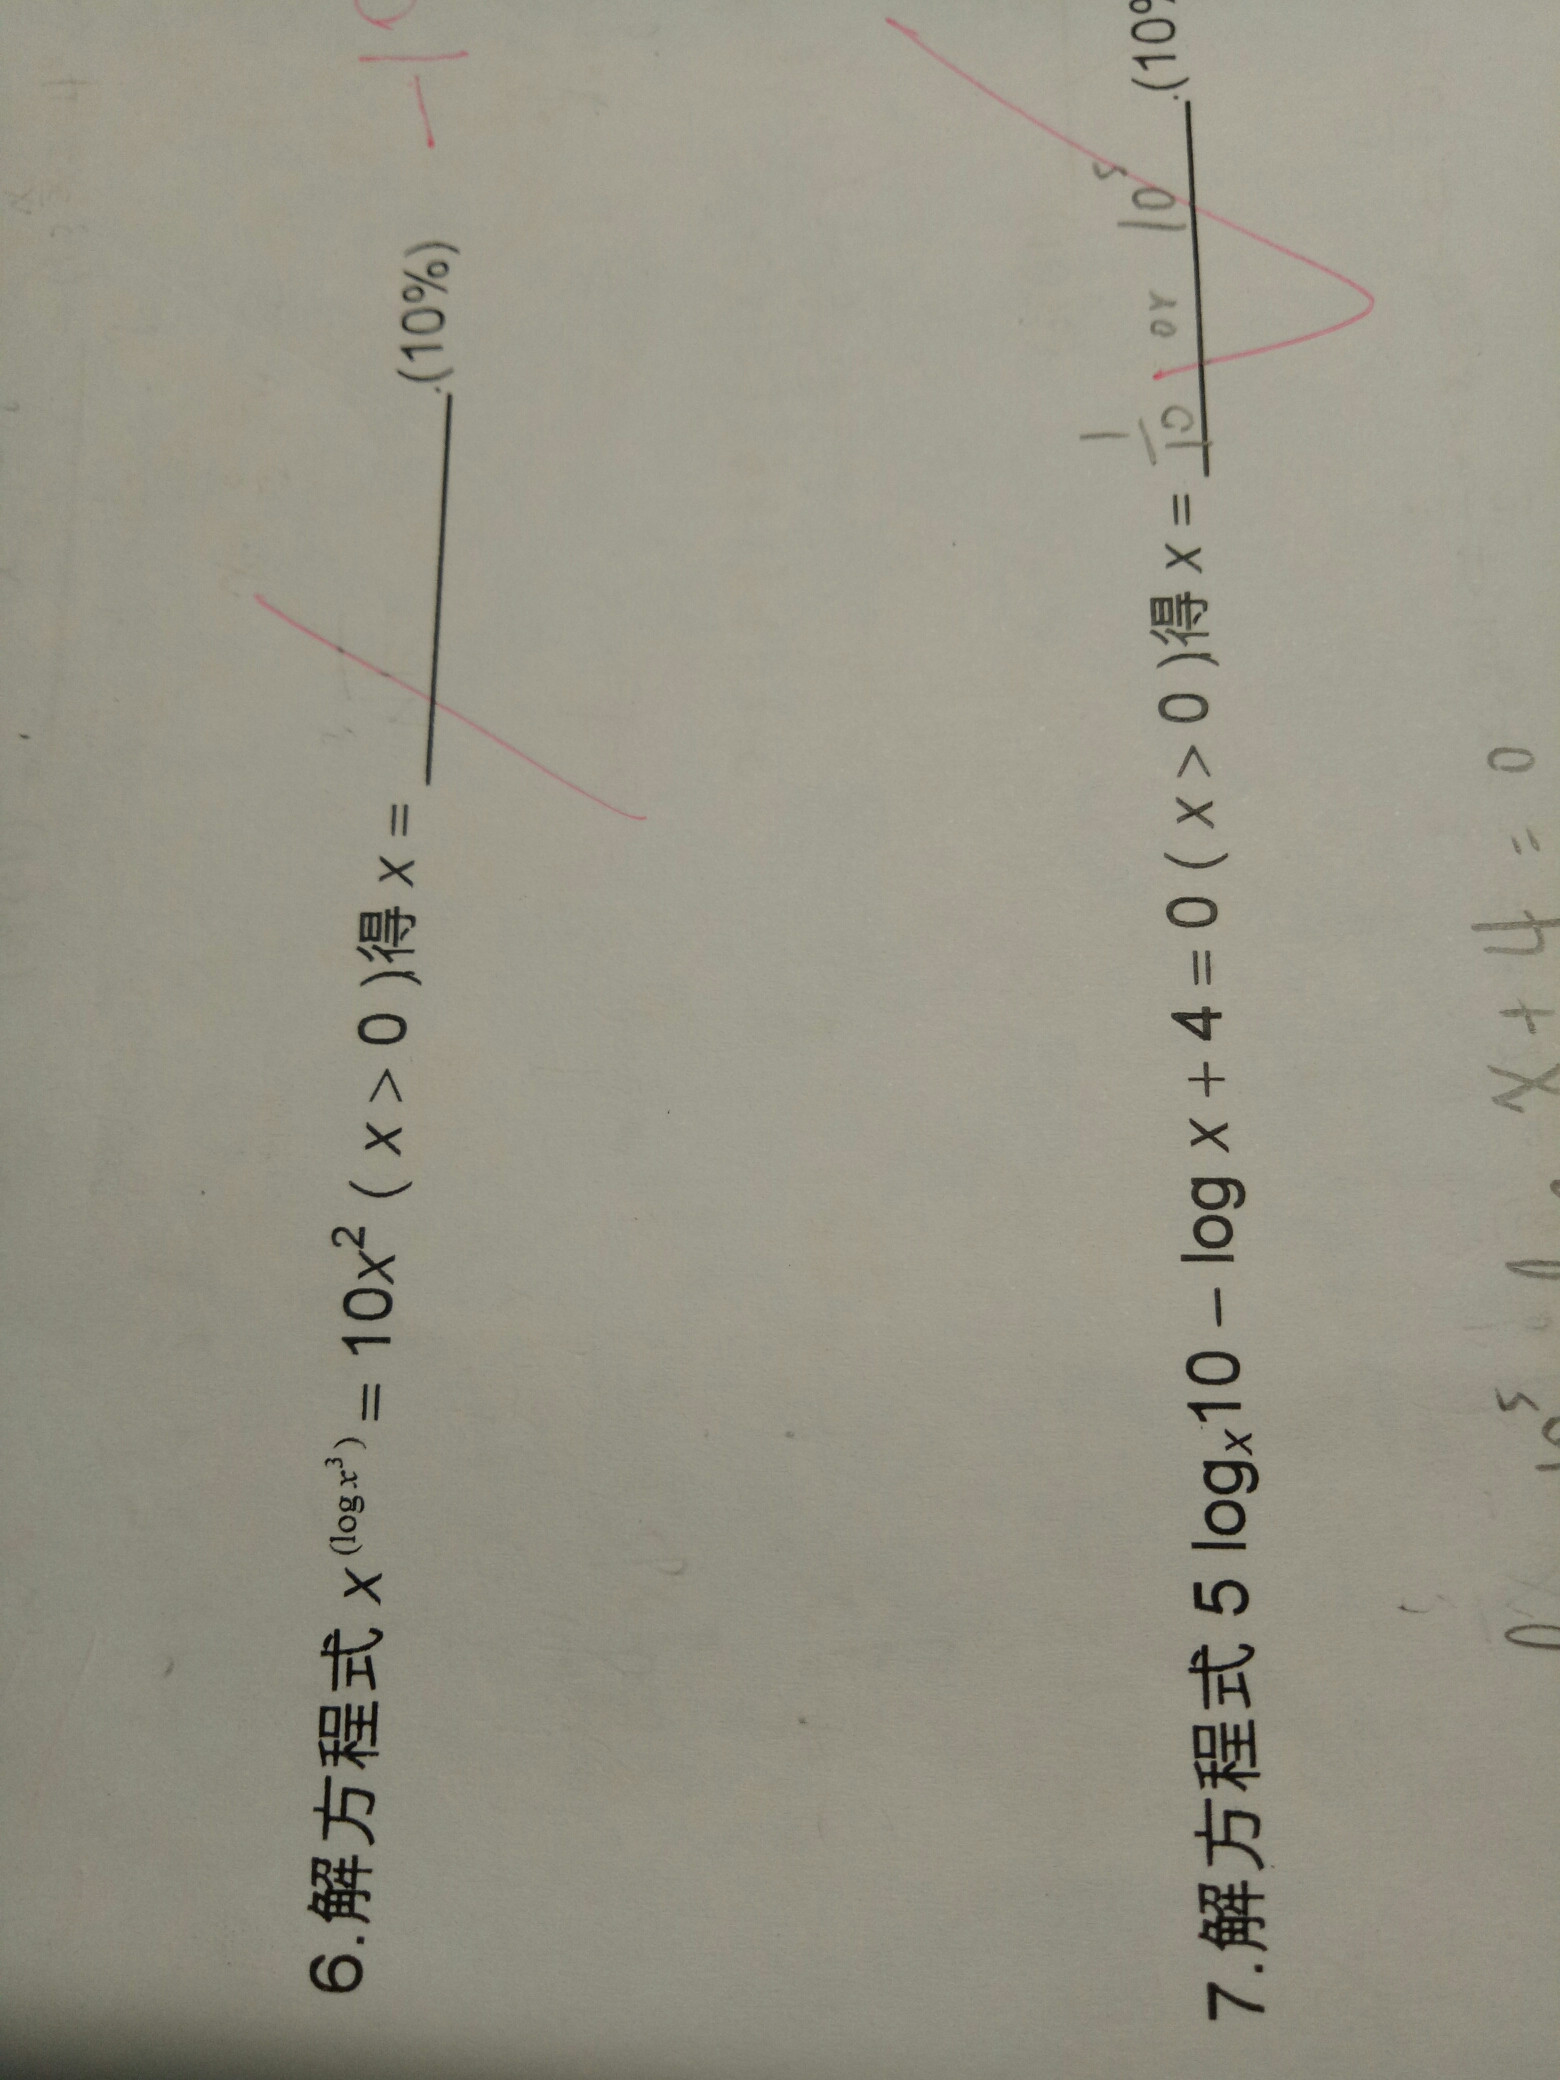 6.解方程式 x^(log x³) = 10x² ( x > 0 )得 x = ________.(10%)
7.解方程式 5 logₓ10 − log x + 4 = 0 ( x > 0 )得 x = 1/10 or 10⁵ .(10%
x + 4 = 0